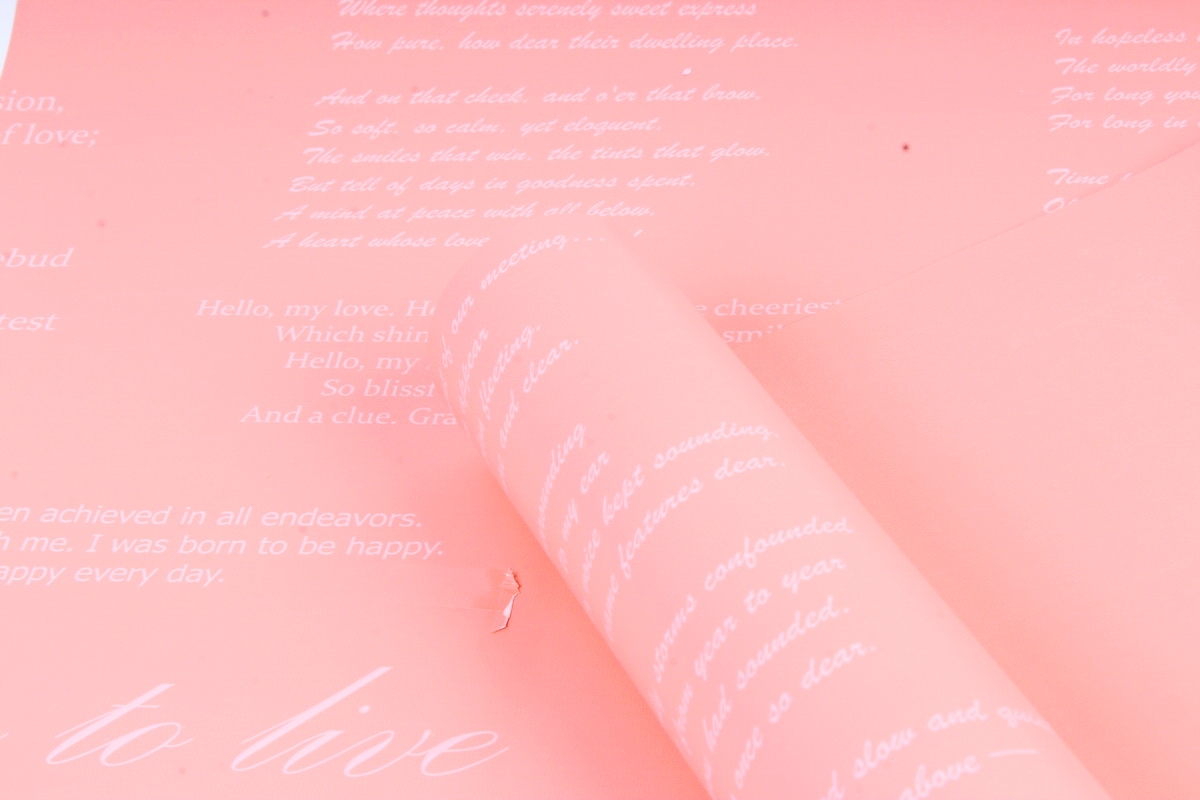 Where thoughts serenely sweet express
How pure, how dear their dwelling place.
And on that cheek, and o'er that brow,
So soft, so calm, yet eloquent,
The smiles that win, the tints that glow,
But tell of days in goodness spent,
A mind at peace with all below,
A heart whose love
In hopeless
The worldly
For long you
For long in
Time
sion,
of love;
ebud
test
Hello, my love.
cheeriest
Which shin
Hello, my
So blissf
And a clue. Gra
en achieved in all endeavors.
h me. I was born to be happy.
appy every day.
to live
of our meeting...
pear
fleeting,
and clear.
ounding
my ear
oice kept sounding,
ome features dear.
storms confounded
om year to year
had sounded,
once so dear.
slow and
above —